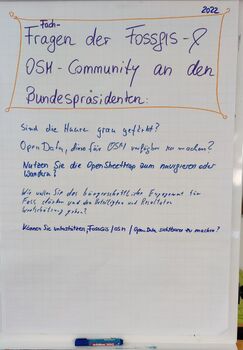 2022
Fach-
Fragen der FOSSGIS- &
OSM-Community an den
Bundespräsidenten:
Sind die Haare grau gefärbt?
OpenData, dima für OSM verfügbar zu machen?
Nutzen Sie die OpenStreetMap zum navigieren oder
Wandern?
Wie wollen Sie das bürgerschaftliche Engagement für
Foss stärken und den Beteiligten und Resultaten
Wertschätzung geben?
Können Sie unterstützen, FOSSGIS/OSM/OpenData sichtbarer zu machen?